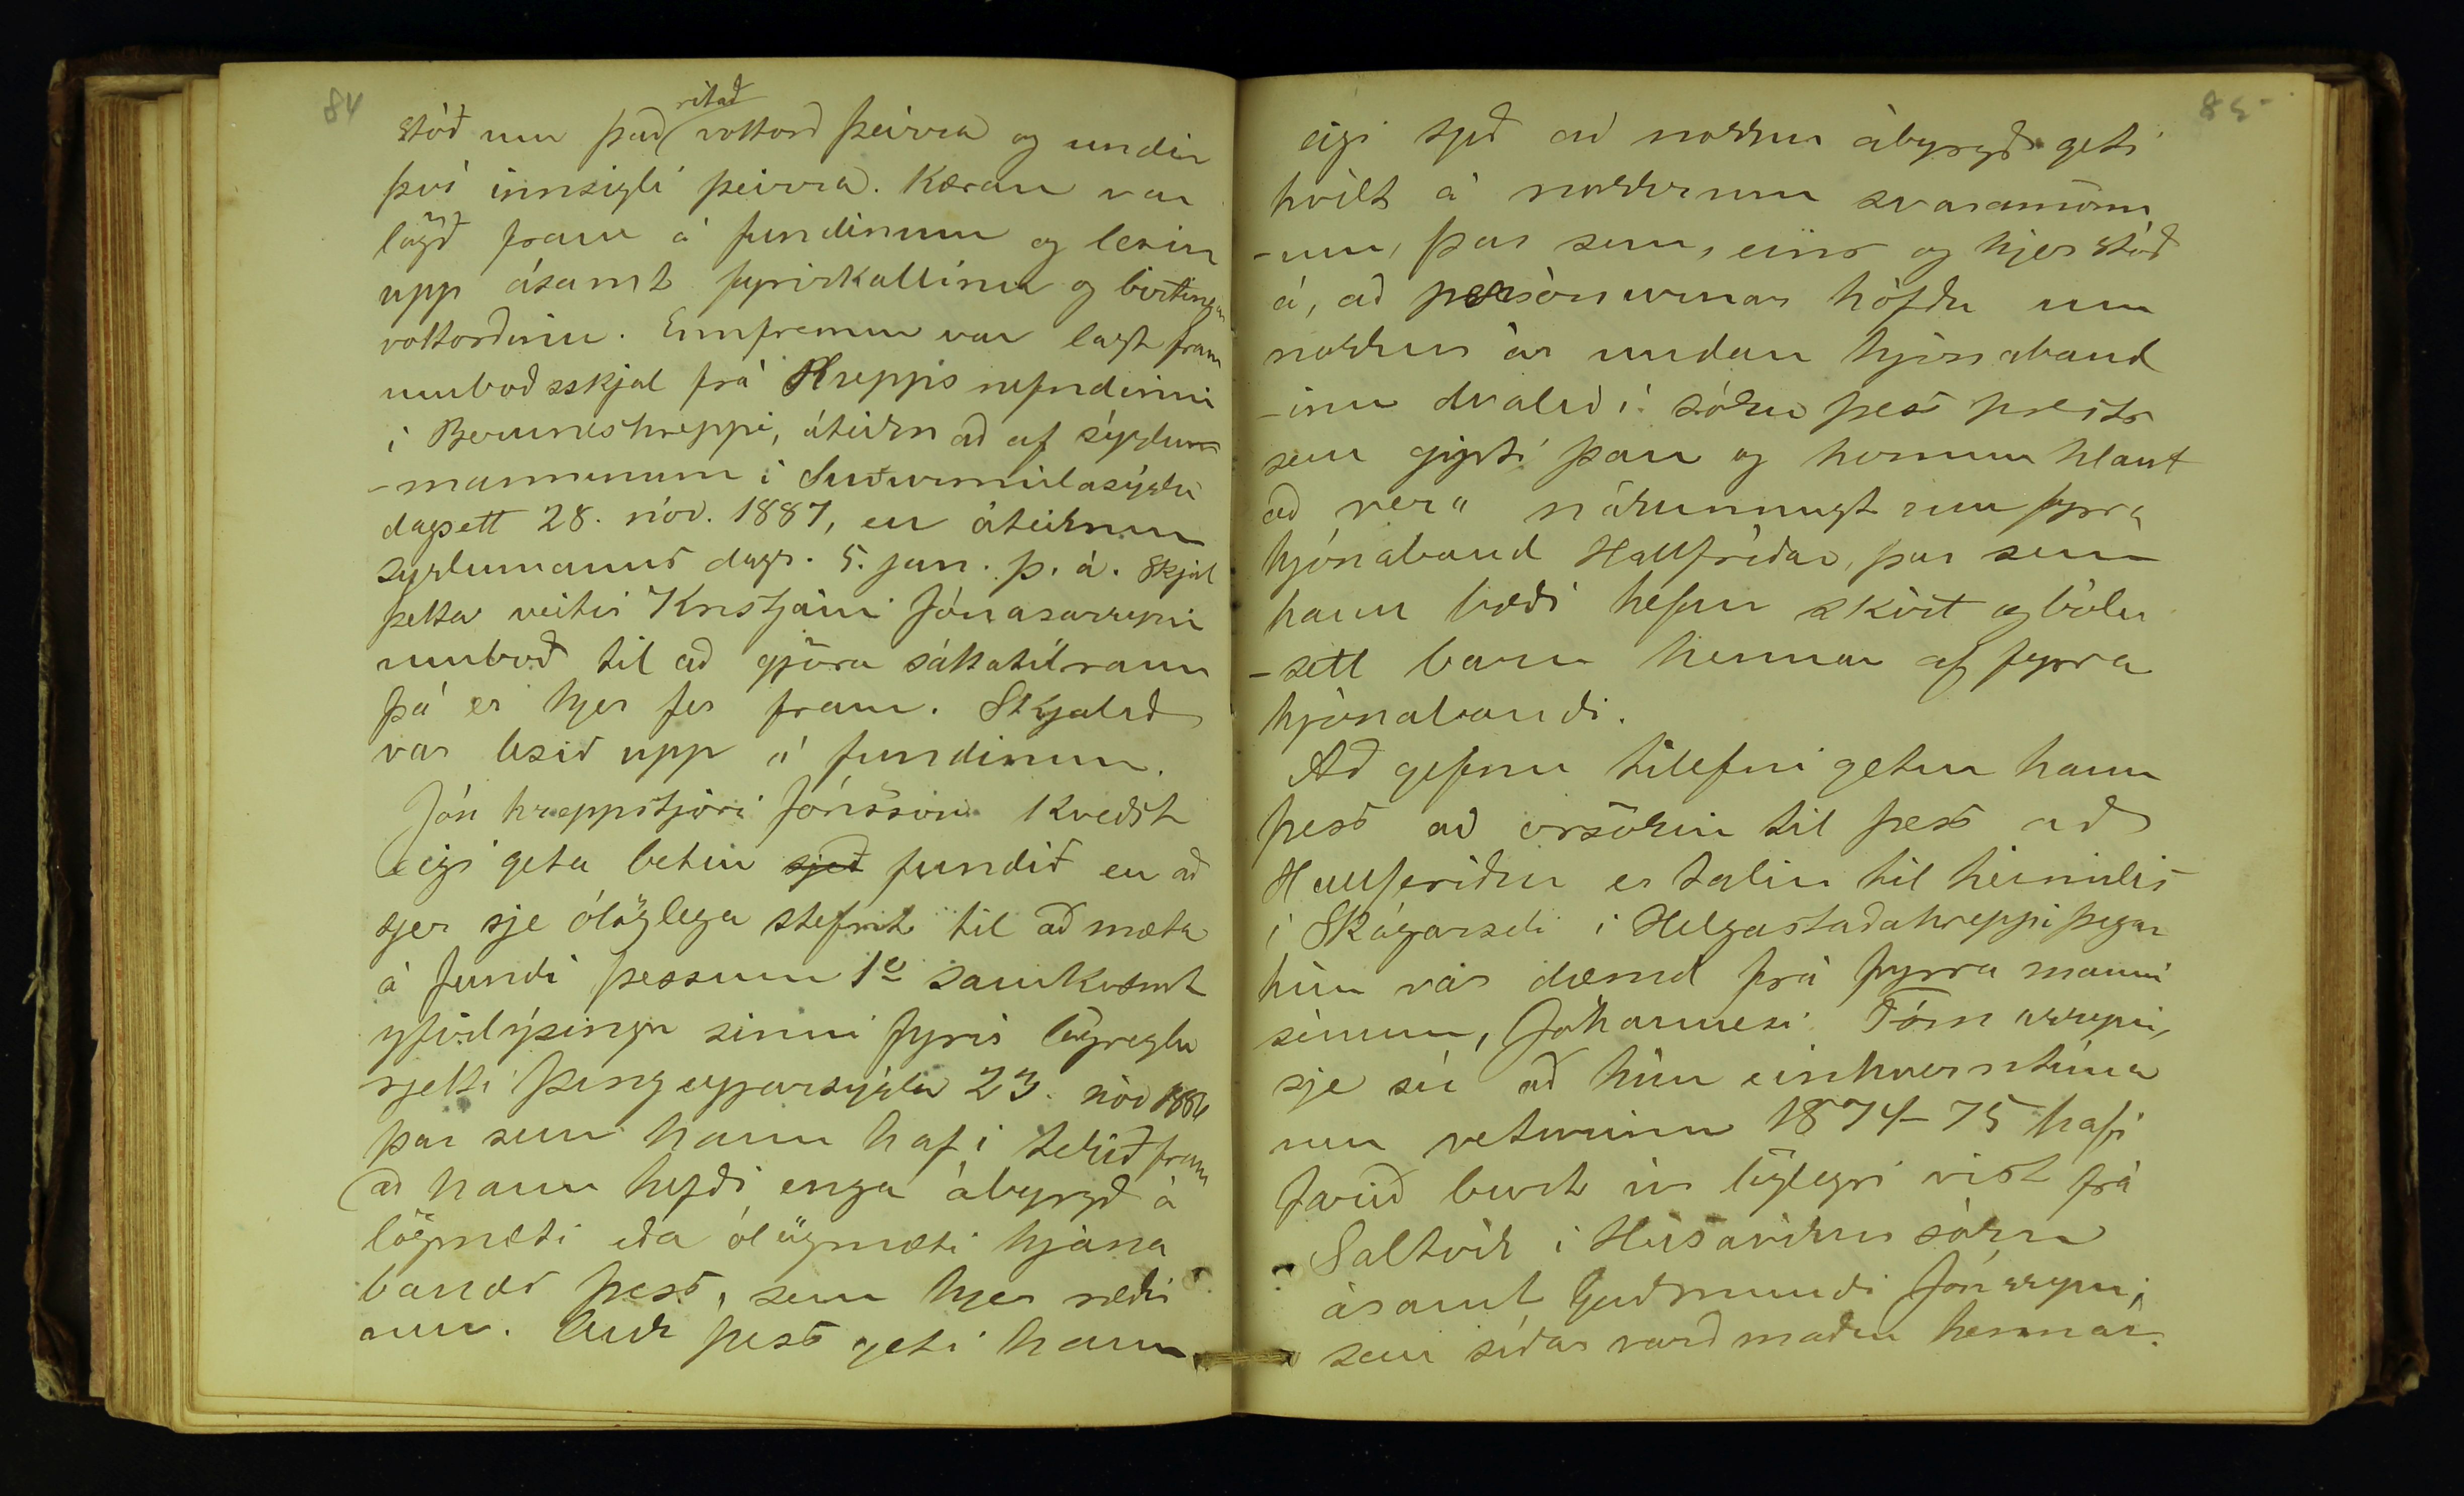 84
stóð um það ritað vottorð þeirra og undir
því innsigli þeirra. Kæran var
lögð fram á fundinum og lesin
upp ásamt fyrirkallinu og birtingar
vottorðinu. Ennfremur var lagt fram
umboðsskjal frá Hreppsnefndinni
í Beruneshreppi, áteiknað af sýslu
-manninum í Suðurmúlasýslu
dagsett 28. nóv. 1887, en áteiknun
sýslumanns dags. 5. jan. þ. á. Skjal
þetta veitir Kristjáni Jónassyni
umboð til að gjöra sáttatilraun
þá er hjer fer fram. Skjalið
var lesið upp á fundinum.
Jón hreppstjóri Jónsson kveðst
eigi geta betur sjeð fundið en að
sjer sje ólöglega stefnt til að mæta
á fundi þessum 1º samkvæmt
yfirlýsingu sinni fyrir lögreglu
rjetti Þingeyjarsýslu 23. nóv 1886
þar sem hann hafi tekið fram
að hann hefði enga ábyrgð á
lögmæti eða ólögmæti hjóna
bands þess, sem hjer ræðir
um. Auk þess geti hann
85
eigi sjeð að nokkur ábyrgð geti
hvílt á nokkrum svaramönn
-um, þar sem, eins og hjer stóð
á, að persónurnar höfðu um
nokkur ár undan hjónaband
-inu dvalið í sókn þess prests
sem gipti þau og honum hlaut
að vera nákunnugt um fyrra
hjónaband Hallfríðar, þar sem
hann bæði hefur skírt og bólu
-sett barn hennar af fyrra
hjónabandi.
Að gefnu tilefni getur hann
þess að orsökin til þess að
Hallfríður er talin til heimilis
í Skógarseli í Helgastaðahreppi þegar
hún var dæmd frá fyrra manni
sínum, Jóhannesi Tómassyni,
sje sú að hún einhverntíma
um veturinn 1874-75 hafi
farið burt úr löglegri vist frá
Saltvík í Húsavíkur sókn
ásamt Guðmundi Jónssyni,
sem síðar varð maður hennar.